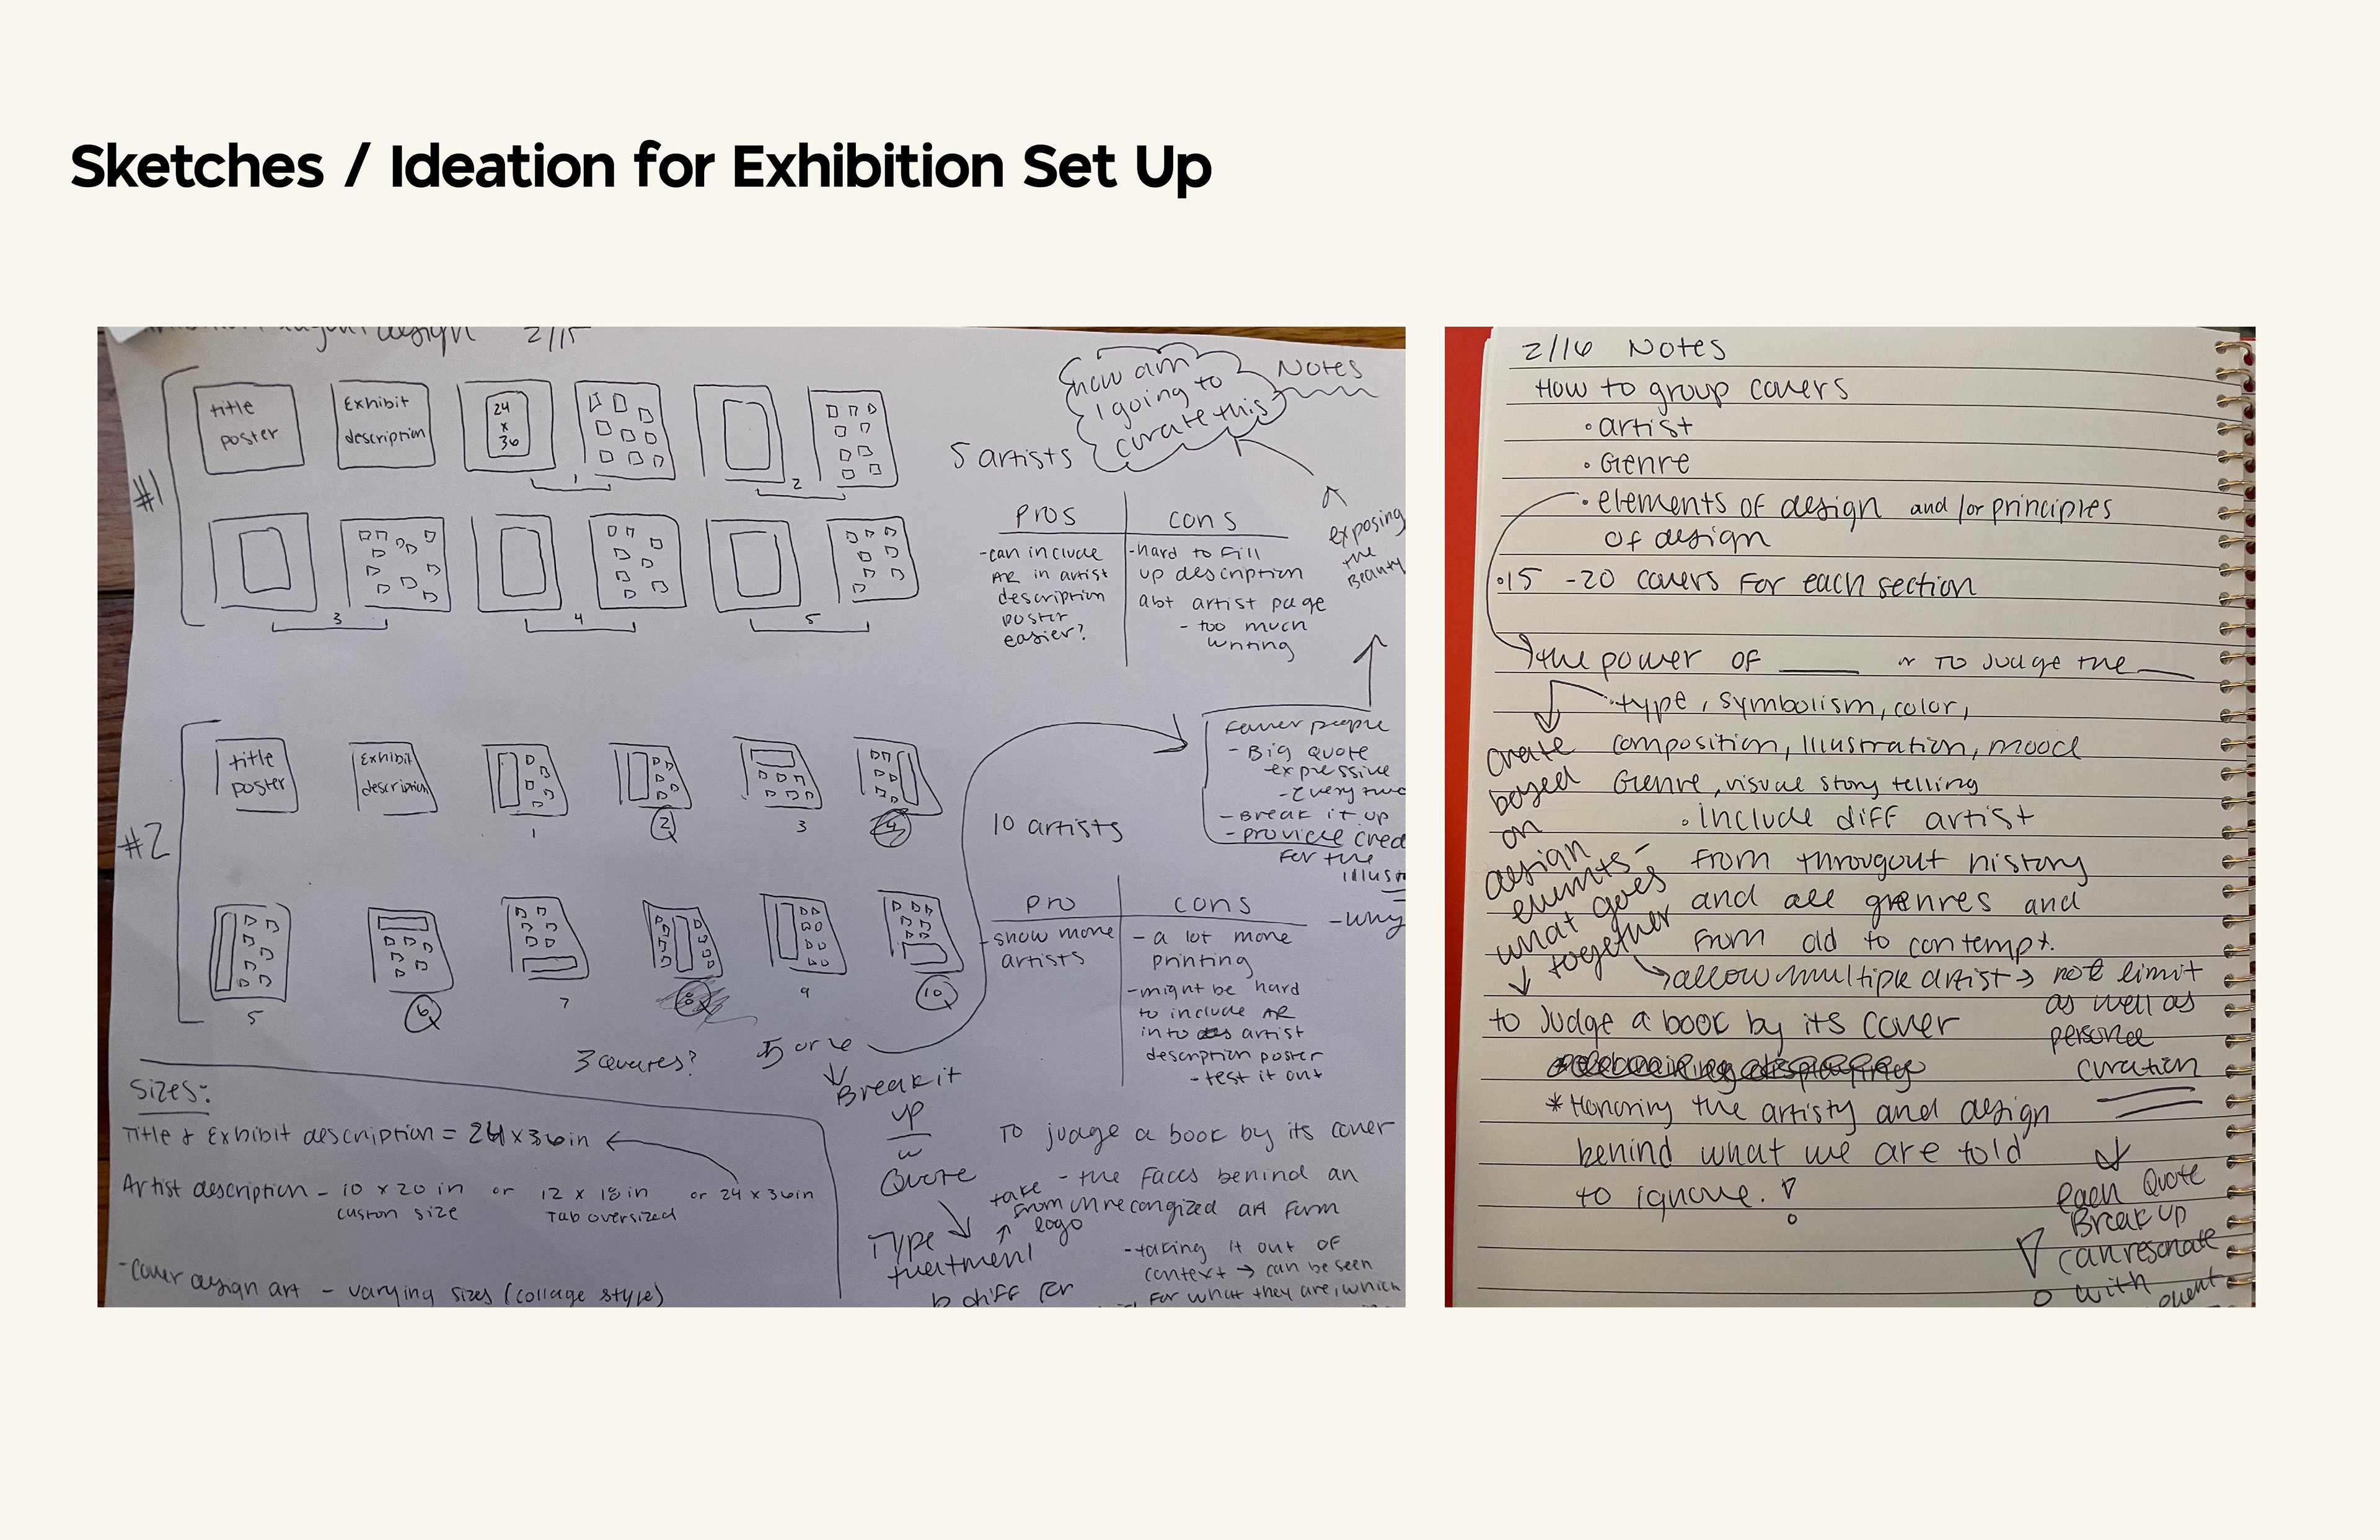 Sketches / Ideation for Exhibition Set Up
design 2/15
#1
title
poster
Exhibit
description
24
x
36
1
2
3
4
5
5 artists
how am
I going to
curate this
Notes
exposing
the
Beauty
Pros
cons
-can include
AR in artist
description
poster
easier?
-hard to fill
up description
abt artist page
- too much
writing
#2
title
poster
Exhibit
description
1
2
3
4
5
6
7
8
9
10
10 artists
fewer people
- Big Quote
expressive
- every two
- Break it up
- provide cred
for the
illust
- why
pro
cons
-show more
artists
- a lot more
printing
-might be hard
to include AR
into artist
description poster
- test it out
3 Quotes?
5 or 4
Break it
up
w
Quote
Type
treatment
diff for
Sizes:
Title & Exhibit description = 24x36in
Artist description - 10 x 20 in or 12 x 18 in or 24 x 36in
custom size
Tab oversized
-cover design art - varying sizes (collage style)
To judge a book by its cover
- the faces behind an
unrecongized art form
take
from
logo
-taking it out of
context → can be seen
for what they are, which
2/16 Notes
How to group covers
• artist
• Genre
• elements of design and/or principles
of design
• 15 -20 covers for each section
the power of ____ or To Judge the ____
• type, symbolism, color,
composition, Illustration, mood
Genre, visual story telling
• Include diff artist
from througout history
and all grenres and
from old to contempt.
create
based
on
design
elemnts-
what goes
together
allow multiple artist → not limit
as well as
personel
curation
to Judge a book by its cover
* Honoring the artisty and design
behind what we are told
to ignore.!
each Quote
Break up
can resonate
with